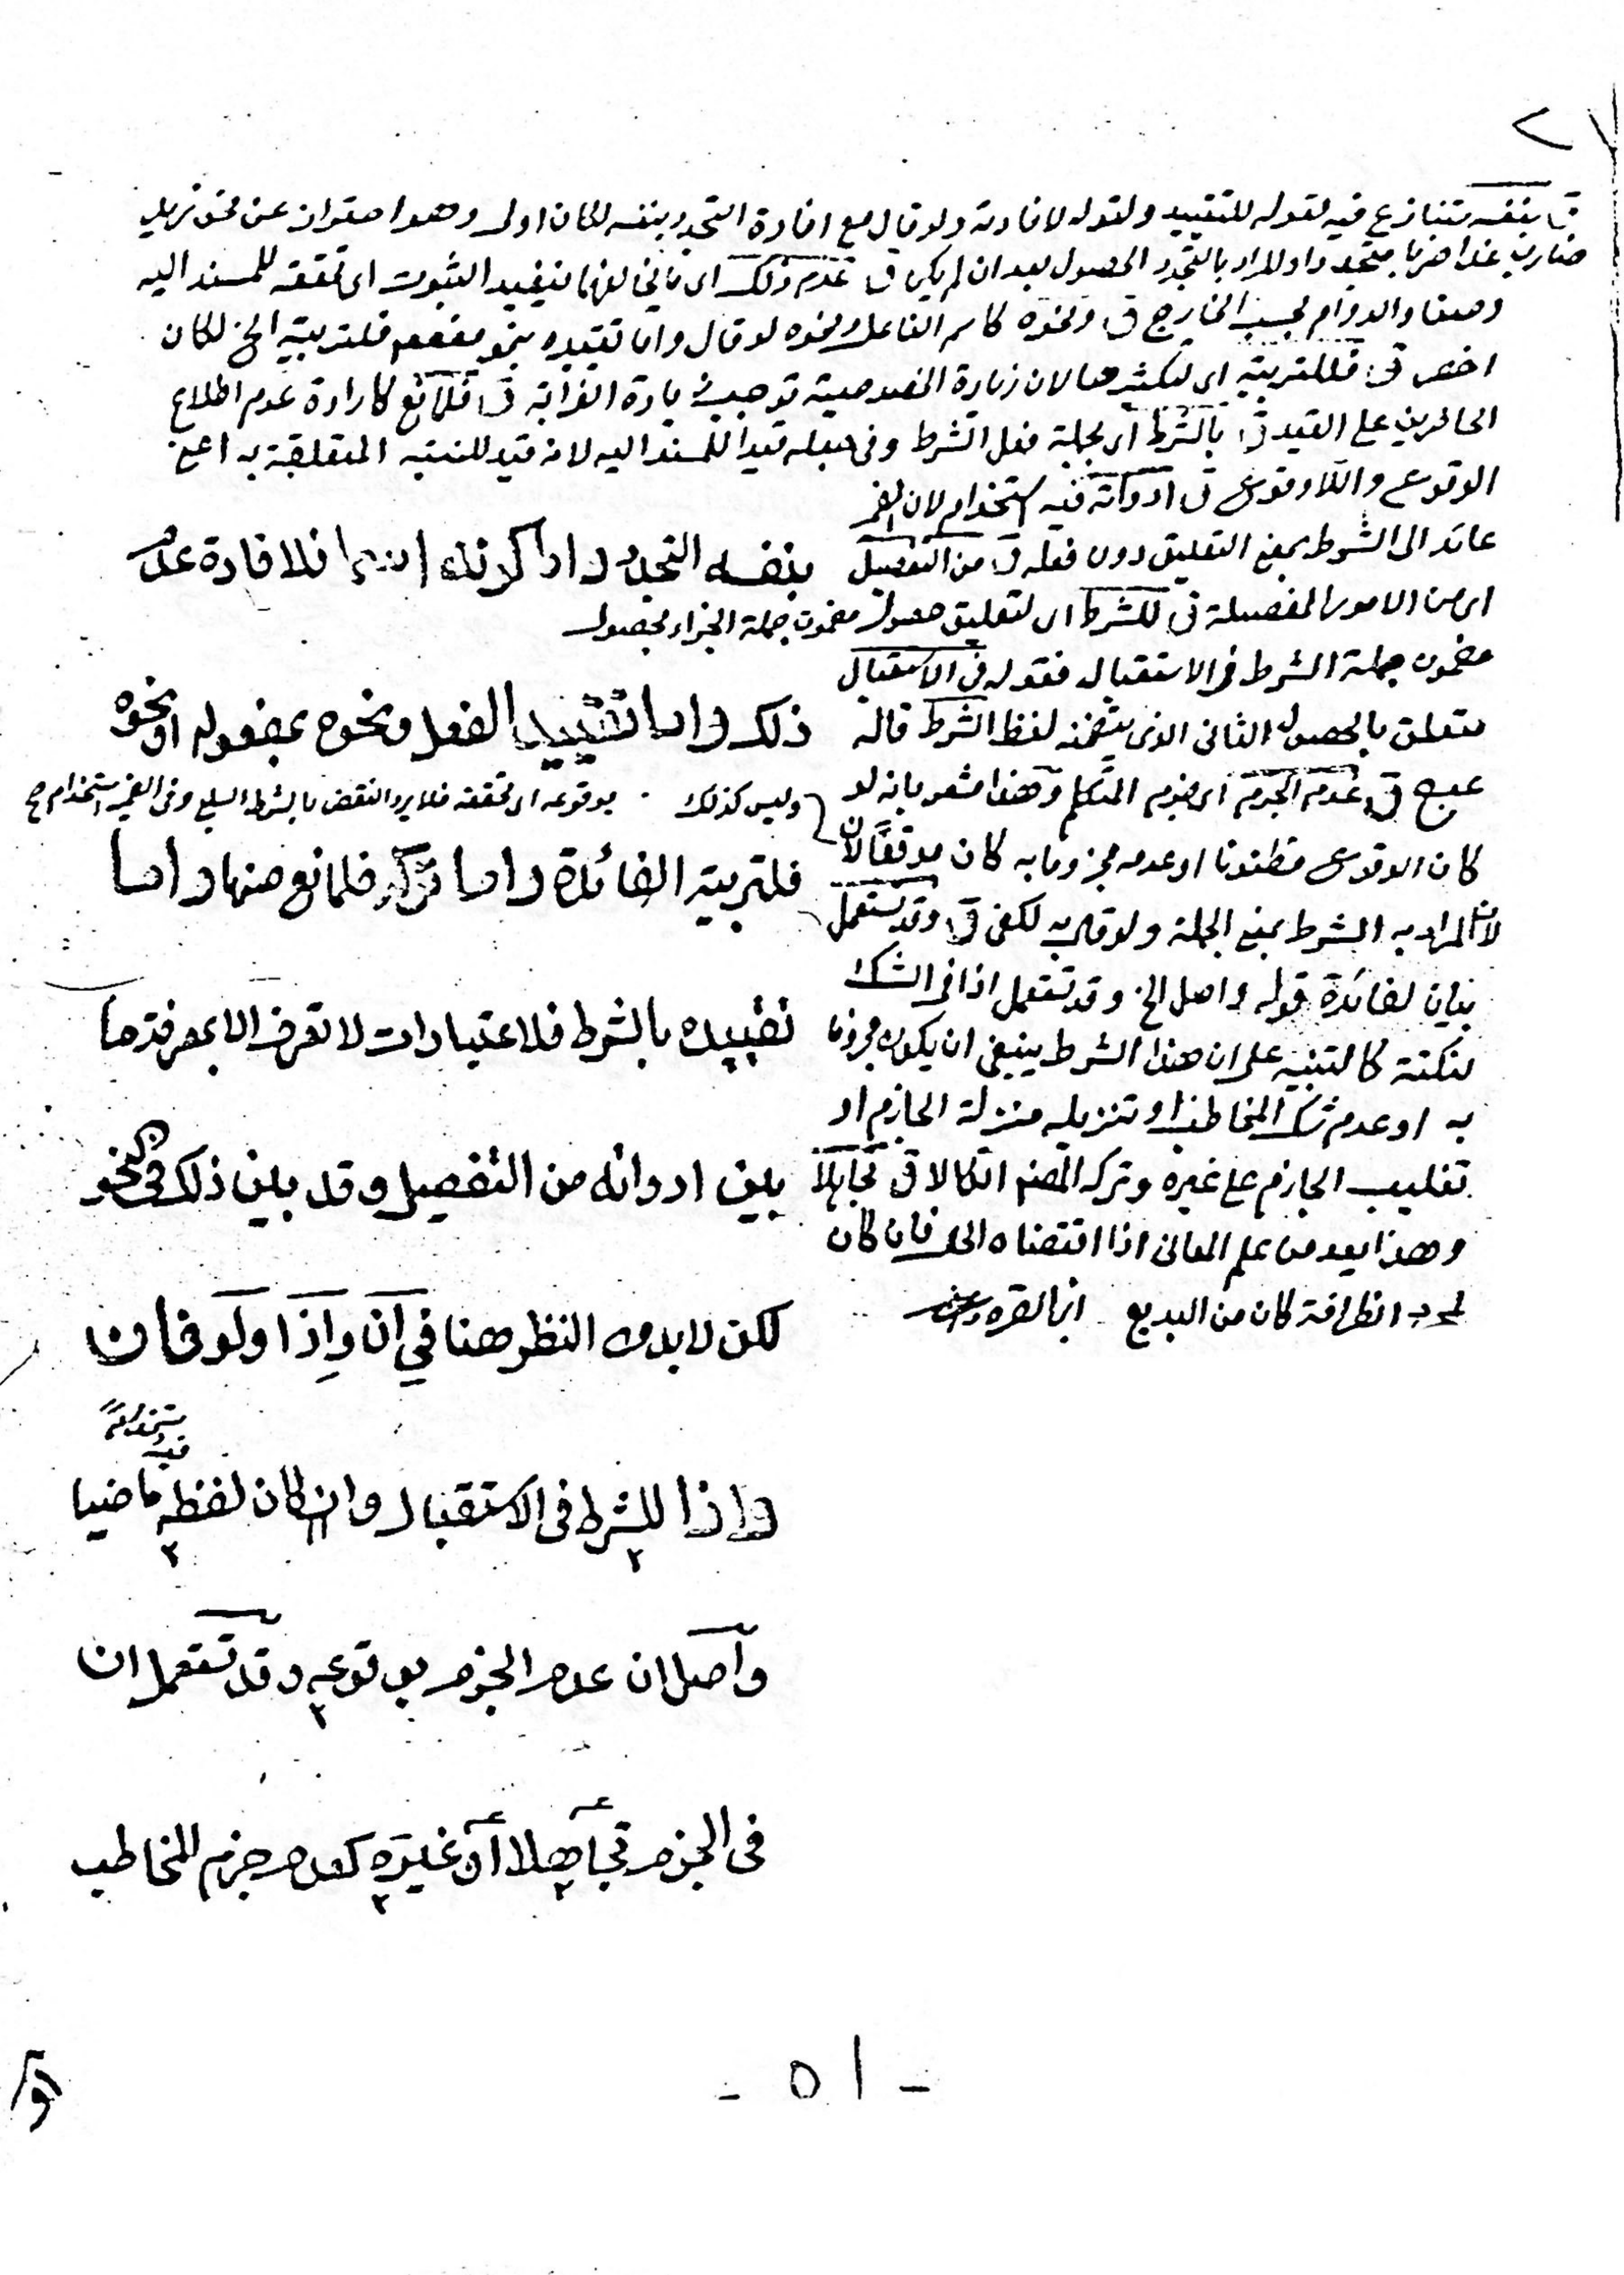 ق بنفسه متنازع فيه لقوله للتقييد ولقوله لافادته ولو قال مع افادة التجدد بنفسه لكان اولى وهو احتراز عن نحو زيد
ضارب غدا ضربا متجددا والمراد بالتجدد الحصول بعد ان لم يكن ق عدم ذلك اى ما يخالفهما ليفيد الثبوت اى تحققه للمسند اليه
وصفا والدوام بحسب الخارج ق ونحوه كاسم الفاعل ونحوه لو قال واما تقييده بنحو مفعوم فلتربية الخ لكان
اخصر ق فللتربية اى لتكثيرها لان زيادة الخصوصية توجب زيادة الفرابة ق فلمانع كارادة عدم اطلاع
الحاضرين على القيد ق بالشرط اى بجملة فعل الشرط وفى جعله قيدا للمسند اليه لانه قيد للنسبة المتعلقة به اعنى
الوقوع واللاوقوع ق ادواته فيه استخدام لان الضمير
عائد الى الشرط بمعنى التعليق دون فعله ق من التفصيل
اى من الامور المفصلة ق للشرط اى لتعليق حصول مضمون جملة الجزاء بحصول
مضمون جملة الشرط فى الاستقبال فقوله فى الاستقبال
متعلق بالحصول الثانى الذى يتضمنه لفظ الشرط قاله
ق عدم الجزم اى جزم المتكلم وهذا مشعر بانه لو
وليس كذلك
بوقوعه اى تحققه فلا يرد النقض بالشرط السلبى وفى الضمير استخدام صح
كان الوقوع مظنونا او عدمه مجزوما به كان موقعا لان
لان المراد به الشرط بمعنى الجملة ولو قال به لكفى ق وقد تستعمل
بيان لفائدة قوله واصل الخ وقد تستعمل اذا فى الشك
لنكتة كالتنبيه على ان هذا الشرط ينبغى ان يكون مجزوما
به او عدم شك المخاطب او تنزيله منزلة الجازم او
تغليب الجازم على غيره وتركه المصنف اتكالا ق تجاهلا
وهذا يعد من علم المعانى اذا اقتضاه الحال فان كان
لمجرد الظرافة كان من البديع ابن القره داغى
بنفسه التجدد واما كونه اسما فلافادة عدم
ذلك واما تقييد الفعل ونحوه بمفعول او نحوه
فلتربية الفائدة واما تركه فلمانع منها واما
تقييده بالشرط فلاعتبارات لا تعرف الا بمعرفة ما
بين ادواته من التفصيل وقد بين ذلك فى النحو
لكن لابد من النظر هنا فى ان واذا ولو فان
واذا للشرط فى الاستقبال وان كان لفظه ماضيا
واصل ان عدم الجزم بوقوعه وقد تستعمل ان
فى الجزم تجاهلا او غيره كعدم جزم المخاطب
- ٥١ -